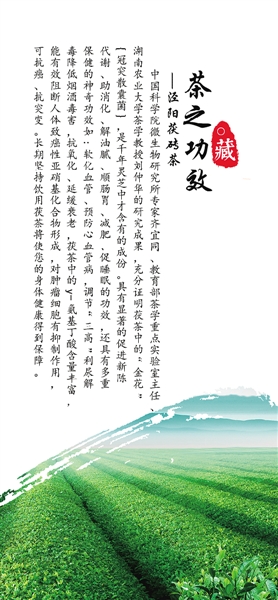 茶之功效
藏
——泾阳茯砖茶
中国科学院微生物研究所专家齐宜同、教育部茶学重点实验室主任、
湖南农业大学茶学教授刘仲华的研究成果，充分证明茯茶中的“金花”
(冠突散囊菌)，是千年灵芝中才含有的成份。具有显著的促进新陈
代谢、助消化、解油腻、顺肠胃、减肥、促睡眠的功效，还具有多重
保健的神奇功效如：软化血管、预防心血管病，调节“三高”利尿解
毒降低烟酒毒害，抗氧化、延缓衰老，茯茶中的γ-氨基丁酸含量丰富，
能有效阻断人体致癌性亚硝基化合物形成，对肿瘤细胞有抑制作用，
可抗癌、抗突变。长期坚持饮用茯茶将使您的身体健康得到保障。